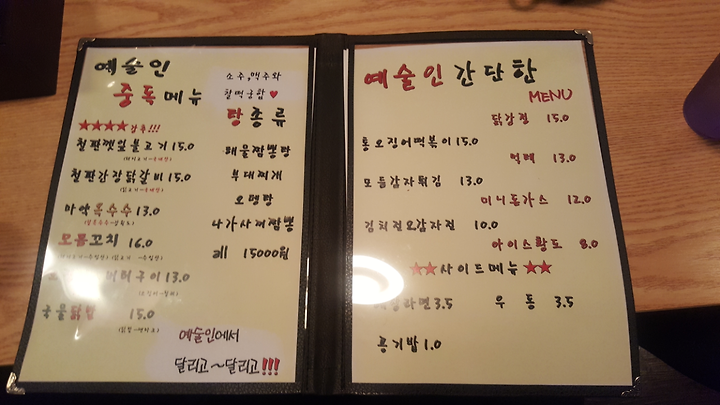 예술인
중독메뉴
★★★★강추!!!
철판깻잎불고기 15.0
철판간장닭갈비 15.0
마약옥수수 13.0
모듬꼬치 16.0
구이 13.0
국물닭발 15.0
소주,맥주와
찰떡궁합♥
탕종류
해물짬뽕탕
부대찌개
오뎅탕
나가사끼짬뽕
all 15000원
예술인에서
달리고~달리고!!!
예술인 간단한
MENU
닭강정 15.0
통오징어떡볶이 15.0
먹태 13.0
모듬감자튀김 13.0
미니돈가스 12.0
김치전&감자전 10.0
아이스황도 8.0
★★사이드메뉴★★
라면 3.5 우동 3.5
공기밥 1.0